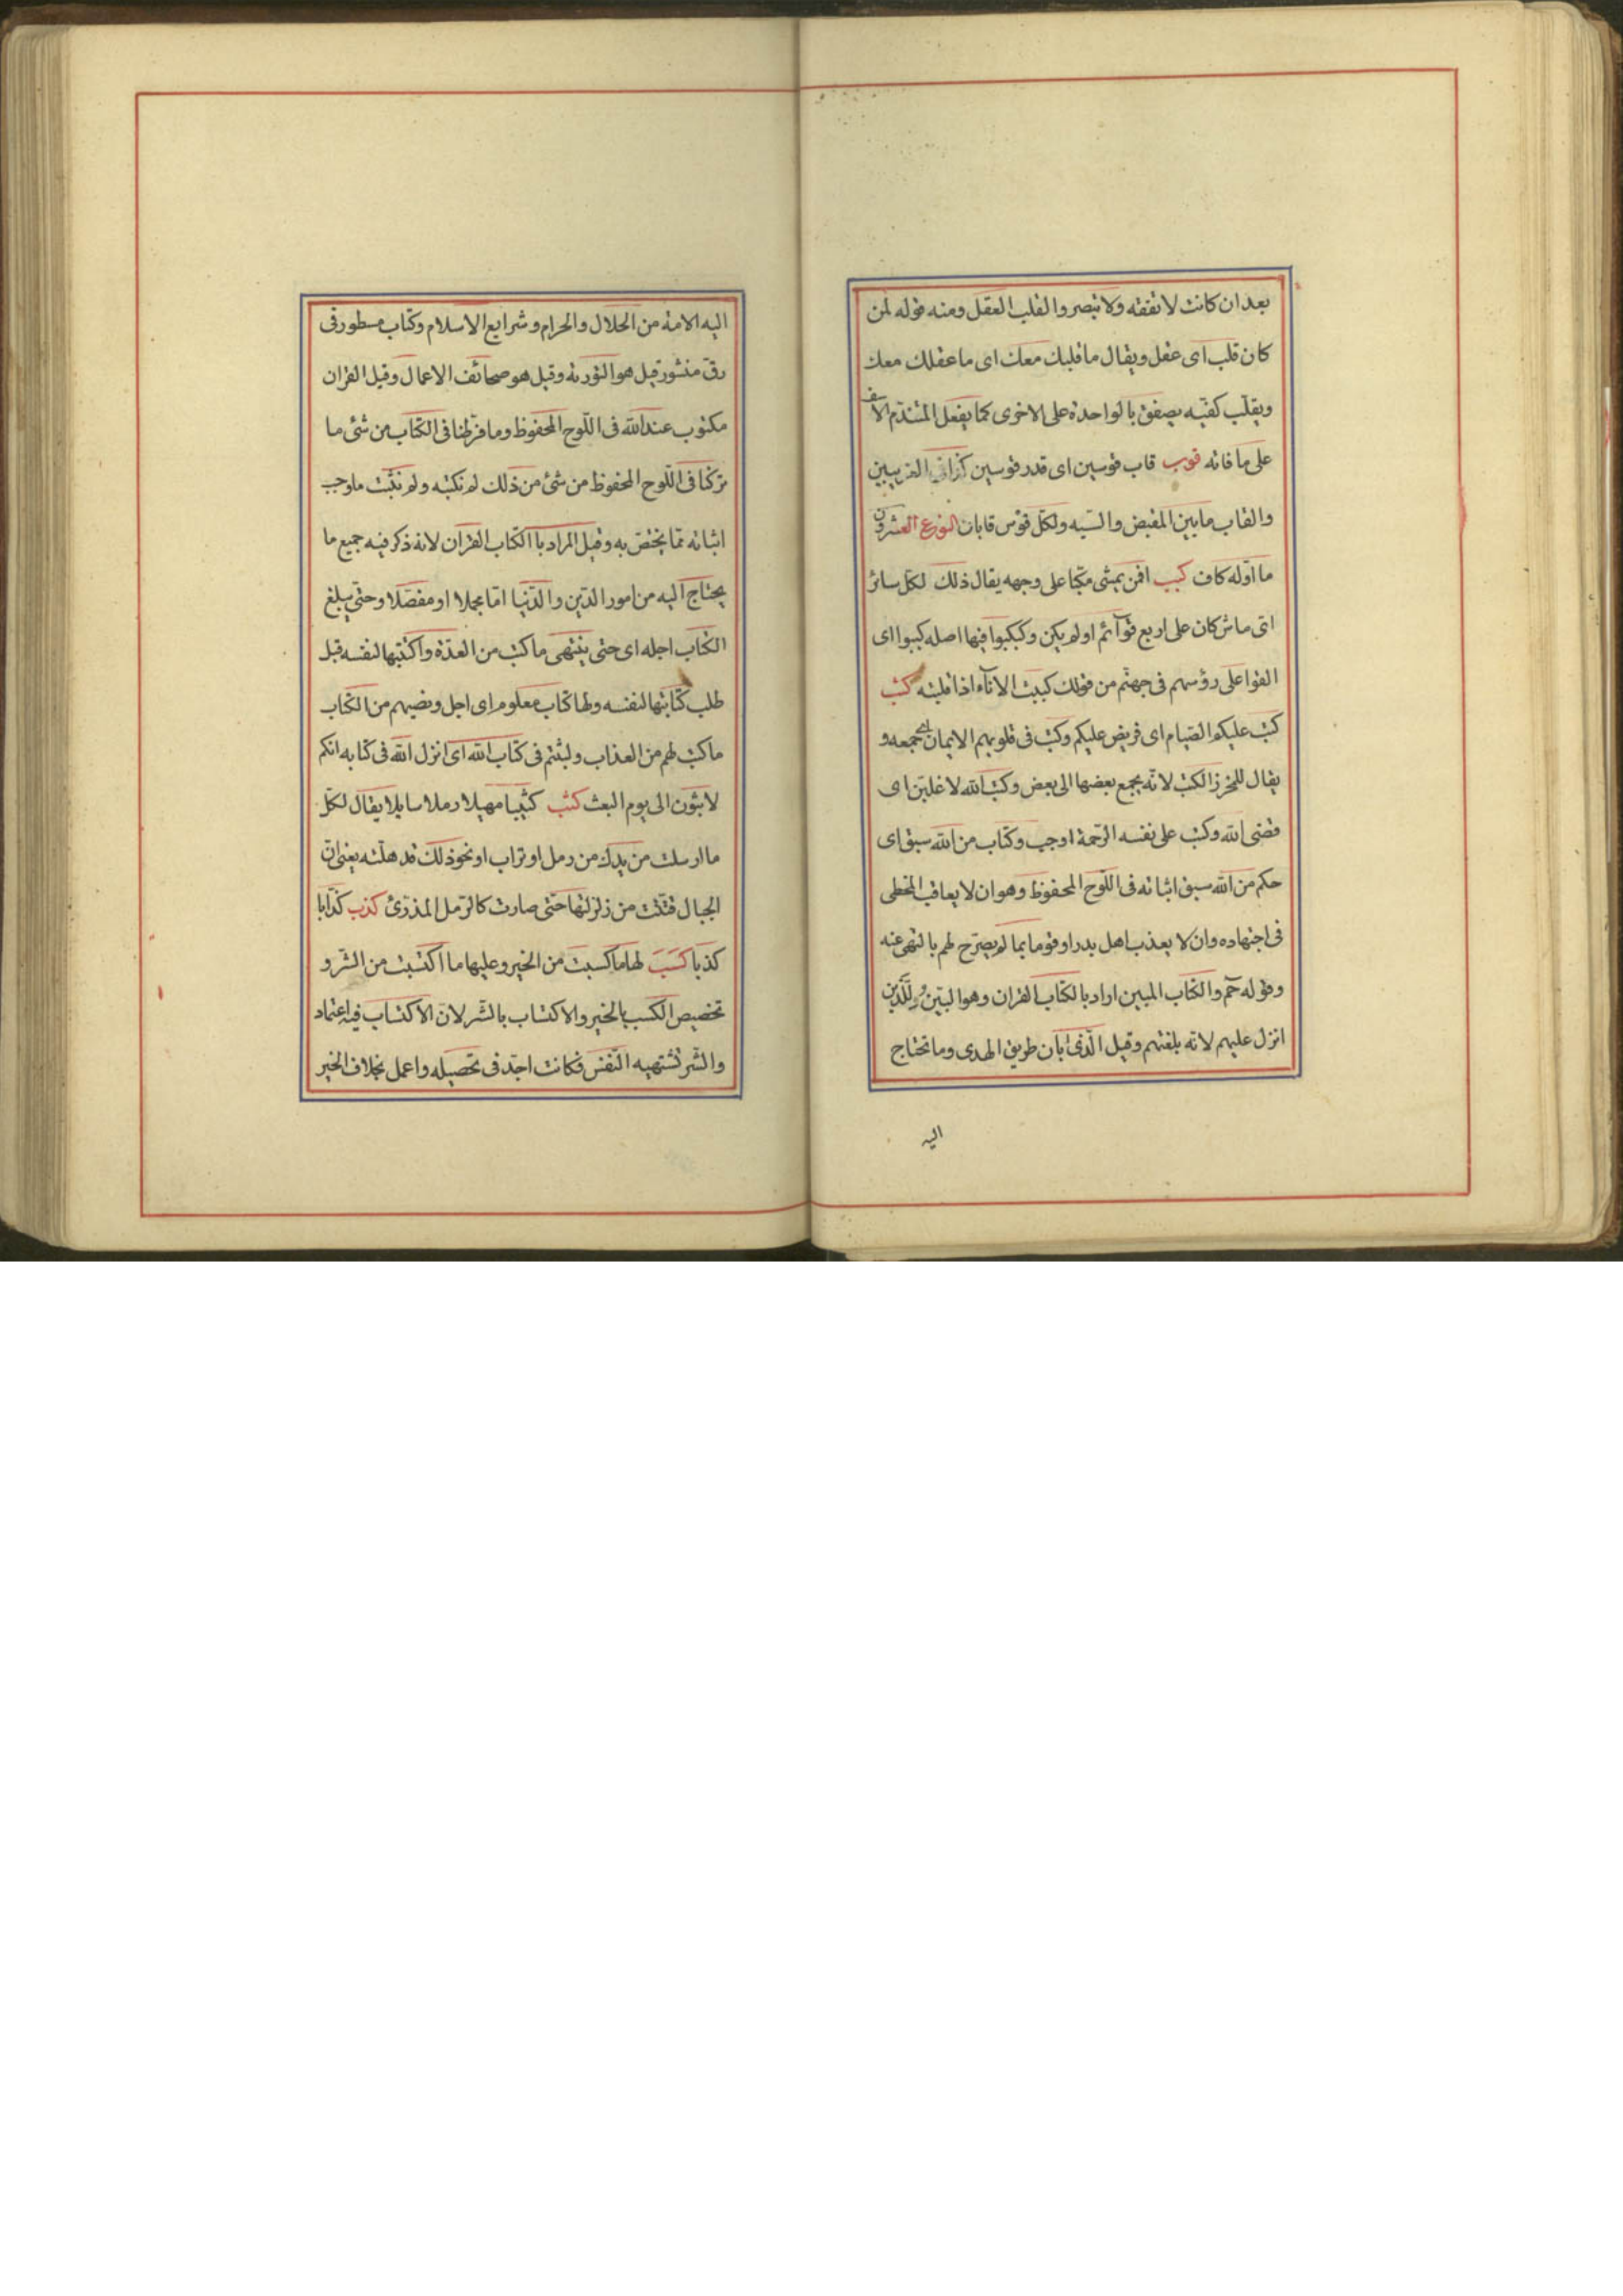 بعد ان كانت لا تفقه ولا تبصر والقلب العقل ومنه قوله لمن
كان قلب اى عقل ويقال ما قلبك معك اى ما عقلك معك
ويقلب كفيه يصفق بالواحدة على الاخرى كما يفعل المتندم الاسف
على ما فاته قوب قاب قوسين اى قدر قوسين
والقاب ما بين المقبض والسيه ولكل قوس قابان النوع العشرون
ما اوّله كاف كبب افمن يمشى مكبا على وجهه يقال ذلك لكل سائر
اى ماش كان على اربع قوآئم او لم يكن وكبكبوا فيها اصله كببوا اى
القوا على رؤسهم فى جهنّم من قولك كببت الاناء اذا قلبته كتب
كتب عليكم الصيام اى فرض عليكم وكتب فى قلوبهم الايمان اى جمعه و
يقال للخرز الكتب لانّه يجمع بعضها الى بعض وكتب الله لاغلبنّ اى
قضى الله وكتب على نفسه الرّحمة اوجب وكتاب من الله سبق اى
حكم من الله سبق اثباته فى اللّوح المحفوظ وهو ان لا يعاقب المخطى
فى اجتهاده وان لا يعذب اهل بدر او قوما بما لم يصرّح لهم بالنهى عنه
وقوله حم والكتاب المبين اراد بالكتاب القران وهو المبيّن للّذين
انزل عليهم لانّه بلغتهم وقيل الّذى ابان طريق الهدى وما تحتاج
اليه
اليه الامة من الحلال والحرام وشرايع الاسلام وكتاب مسطور فى
رق منشور قيل هو التّورية وقيل هو صحائف الاعمال وقيل القران
مكتوب عند الله فى اللّوح المحفوظ وما فرّطنا فى الكتاب من شئ ما
تركنا فى اللّوح المحفوظ من شئ من ذلك لم نكتبه ولم نثبت ما وجب
اثباته ممّا يختصّ به وقيل المراد باالكتاب القران لانه ذكر فيه جميع ما
يحتاج اليه من امور الدّين والدّنيا امّا مجملا او مفصّلا وحتّى يبلغ
الكتاب اجله اى حتى ينتهى ما كتب من العدّة واكتتبها لنفسه قيل
طلب كتابتها لنفسه ولها كتاب معلوم اى اجل ونصيبهم من الكتاب
ما كتب لهم من العذاب ولبثتم فى كتاب الله اى انزل الله فى كتابه انكم
لابثون الى يوم البعث كثب كثيبا مهيلا رملا سايلا يقال لكل
ما ارسلت من يدك من رمل او تراب او نحو ذلك قد هلته يعنى انّ
الجبال فتّتت من زلزلتها حتّى صارت كالرّمل المذرّى كذب كذّابا
كذبا كسب لها ما كسبت من الخير وعليها ما اكتسبت من الشر و
تخصيص الكسب بالخير والاكتساب بالشّر لانّ الاكتساب فيه اعتماد
والشّر تشتهيه النّفس فكانت اجدّ فى تحصيله واعمل بخلاف الخير